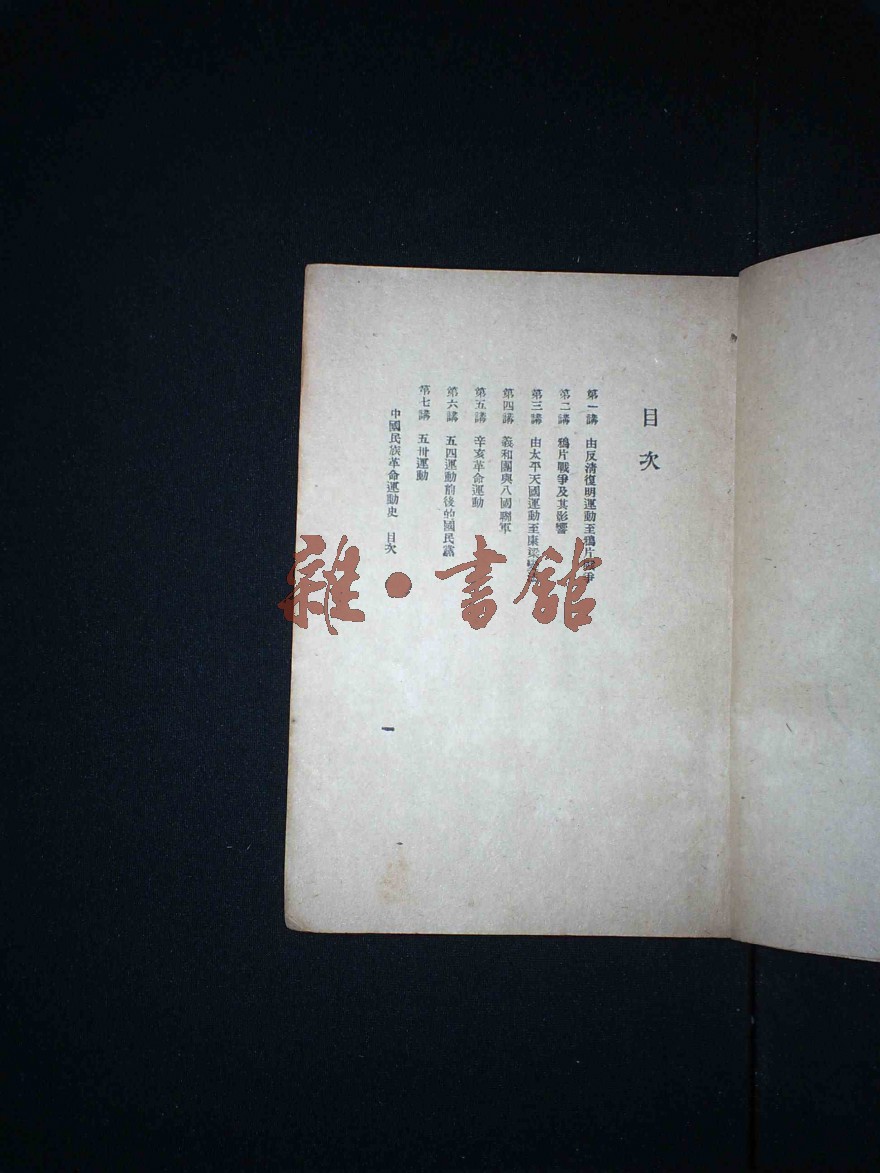 目次
第一講 由反清復明運動至鴉片戰爭
第二講 鴉片戰爭及其影響
第三講 由太平天國運動至康梁
第四講 義和團與八國聯軍
第五講 辛亥革命運動
第六講 五四運動前後的國民黨
第七講 五卅運動
中國民族革命運動史 目次
一
雜·書館